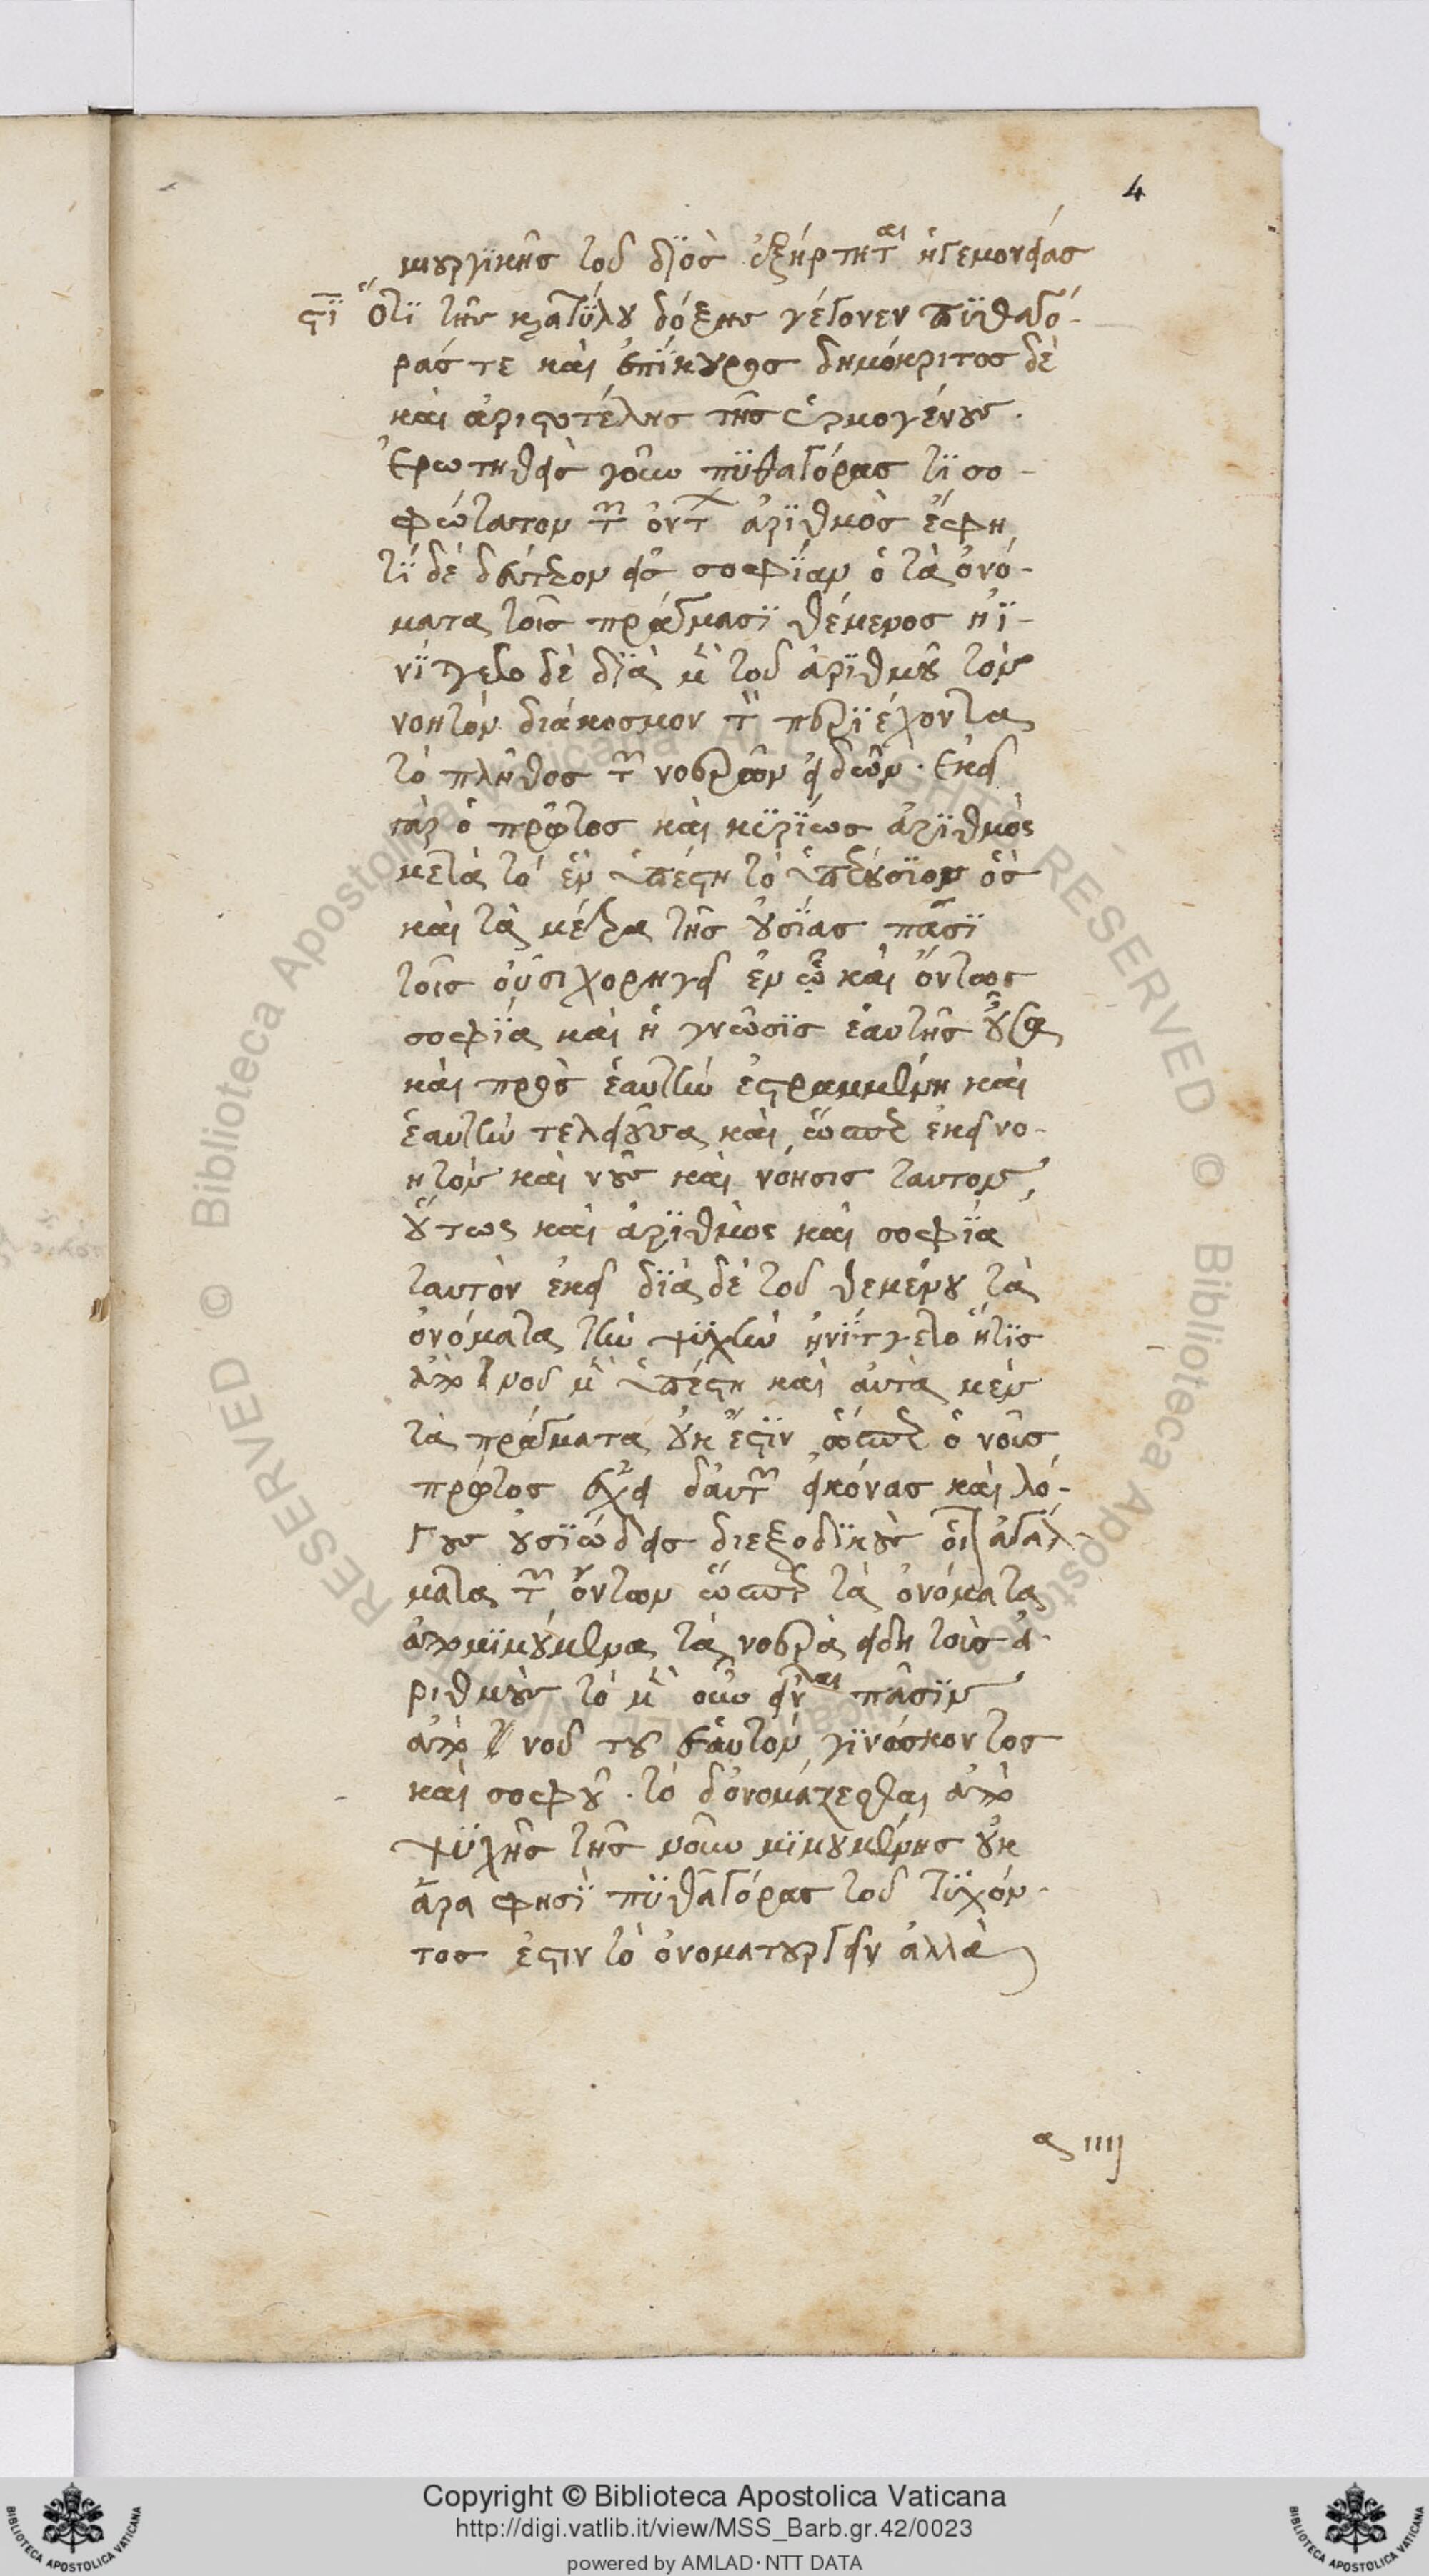 4
μιουργϊκῆς τοῦ δϊὸς ἐξήρτηται ἡγεμονείας
ςϊ Ὅτϊ τῆς κρατΰλου δόξης γέγονεν πϋθαγό-
ρας τε καὶ ἐπΐκουρος δημόκριτος δὲ
καὶ ἀριστοτέλης τῆς ἑρμογένους.
Ἐρωτηθεὶς γοῦν πϋθαγόρας τϊ σο-
φώτατον τῶν ὄντων ἀρϊθμὸς ἔφη
τΐ δὲ δεύτερον εἰς σοφΐαν ὁ τὰ ὀνό-
ματα τοῖς πράγμασϊ θέμενος ἠϊ-
νΐττετο δὲ δϊὰ μὲν τοῦ ἀρϊθμοῦ τὸν
νοητὸν διάκοσμον τὸν περϊέχοντα
τὸ πλῆθος τῶν νοερῶν εἰδῶν. Ἐκεῖ
γὰρ ὁ πρῶτος καὶ κϋρΐως ἀρϊθμὸς
μετὰ τὸ ἓν ὑπέστη τὸ ὑπερούσϊον ὃς
καὶ τὰ μέτρα τῆς οὐσΐας πᾶσϊ
τοῖς οὖσι χορηγεῖ ἐν ᾧ καὶ ὄντως
σοφΐα καὶ ἡ γνῶσϊς ἑαυτῆς οὖσα
καὶ πρὸς ἑαυτὴν ἐστραμμένη καὶ
ἑαυτὴν τελειοῦσα καὶ ὥσπερ ἐκεῖ νο-
ητὸν καὶ νοῦς καὶ νόησις ταυτον,
οὕτως καὶ ἀρϊθμὸς καὶ σοφΐα
ταυτὸν ἐκεῖ δϊὰ δὲ τοῦ θεμένου τὰ
ὀνόματα τὴν ψϋχὴν ᾐνΐττετο ἥτϊς
ἀπὸ νοῦ μὲν ὑπέστη καὶ αὐτὰ μὲν
τὰ πράγματα οὐκ ἔστϊν ὥσπερ ὁ νοῦς
πρῶτος ἔχει δ' αὐτῶν εἰκόνας καὶ λό-
γους οὐσϊώδεις διεξοδϊκοὺς οἷον ἀγάλ-
ματα τῶν ὄντων ὥσπερ τὰ ὀνόματα
ἀπομϊμούμενα τὰ νοερὰ εἴδη τοὺς ἀ-
ριθμοὺς τὸ μὲν οὖν εἶναι πᾶσϊν
ἀπὸ νοῦ του ἑαυτὸν γϊνώσκοντος
καὶ σοφοῦ. τὸ δ' ὀνομάζεσθαι ἀπὸ
ψϋχῆς τῆς νοῦν μϊμουμένης οὐκ
ἄρα φησῒ πϋθαγόρας τοῦ τϋχόν-
τος ἐστιν τὸ ὀνοματουργεῖν ἀλλὰ
a iiij
Copyright © Biblioteca Apostolica Vaticana
http://digi.vatlib.it/view/MSS_Barb.gr.42/0023
powered by AMLAD · NTT DATA